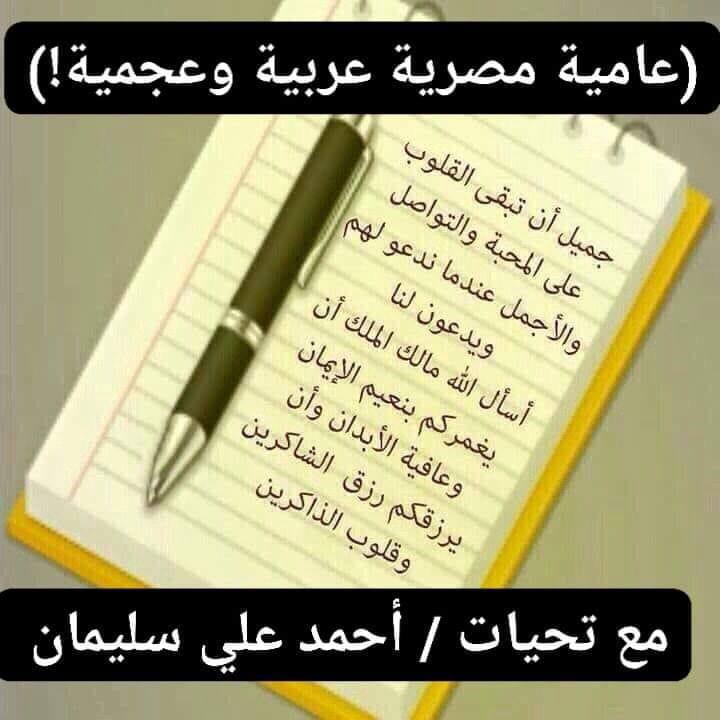 (عامية مصرية عربية وعجمية!)
جميل أن تبقى القلوب
على المحبة والتواصل
والأجمل عندما ندعو لهم
ويدعون لنا
أسأل الله مالك الملك أن
يغمركم بنعيم الإيمان
وعافية الأبدان وأن
يرزقكم رزق الشاكرين
وقلوب الذاكرين
مع تحيات / أحمد علي سليمان